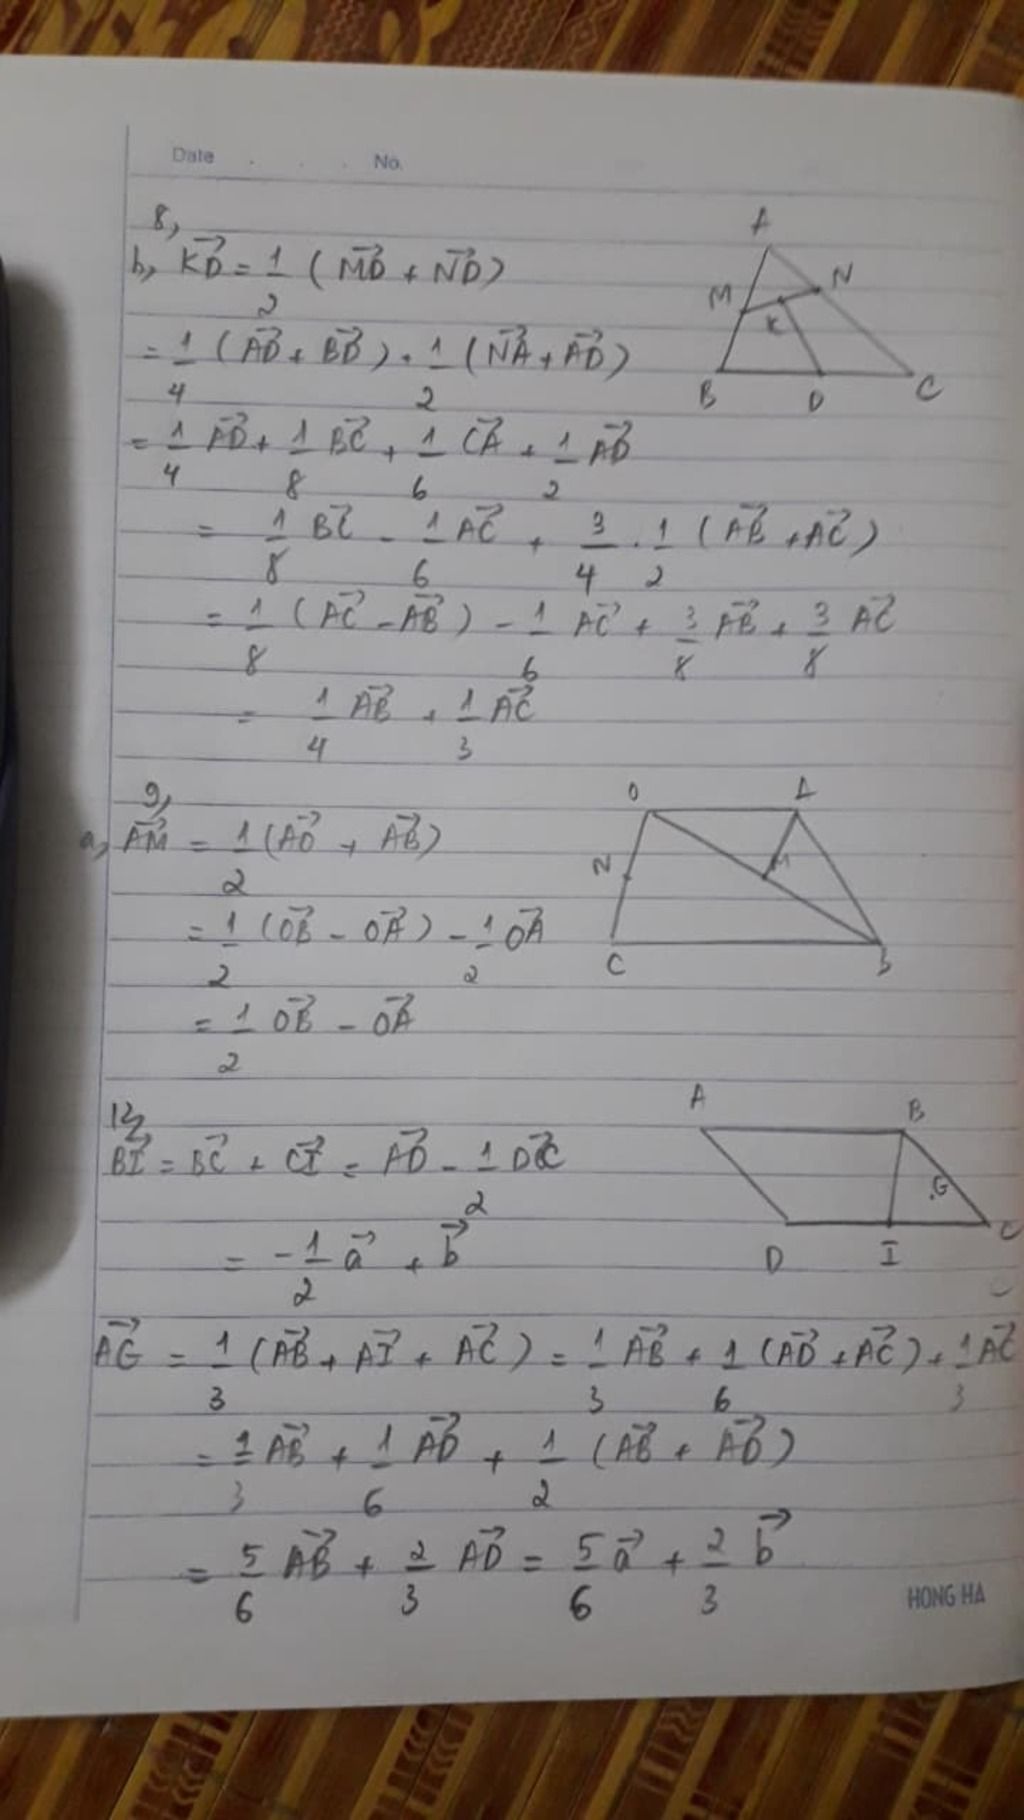 Date . . . No.
8,
b, $\overrightarrow{KD} = \frac{1}{2} (\overrightarrow{MD} + \overrightarrow{ND})$
$= \frac{1}{4} (\overrightarrow{AD} + \overrightarrow{BD}) + \frac{1}{2} (\overrightarrow{NA} + \overrightarrow{AD})$
$= \frac{1}{4} \overrightarrow{AD} + \frac{1}{8} \overrightarrow{BC} + \frac{1}{6} \overrightarrow{CA} + \frac{1}{2} \overrightarrow{AD}$
$= \frac{1}{8} \overrightarrow{BC} - \frac{1}{6} \overrightarrow{AC} + \frac{3}{4} . \frac{1}{2} (\overrightarrow{AB} + \overrightarrow{AC})$
$= \frac{1}{8} (\overrightarrow{AC} - \overrightarrow{AB}) - \frac{1}{6} \overrightarrow{AC} + \frac{3}{8} \overrightarrow{AB} + \frac{3}{8} \overrightarrow{AC}$
$= \frac{1}{4} \overrightarrow{AB} + \frac{1}{3} \overrightarrow{AC}$
A
M
N
K
B
D
C
9,
a, $\overrightarrow{AM} = \frac{1}{2} (\overrightarrow{AO} + \overrightarrow{AB})$
$= \frac{1}{2} (\overrightarrow{OB} - \overrightarrow{OA}) - \frac{1}{2} \overrightarrow{OA}$
$= \frac{1}{2} \overrightarrow{OB} - \overrightarrow{OA}$
O
A
N
M
C
B
12,
$\overrightarrow{BI} = \overrightarrow{BC} + \overrightarrow{CI} = \overrightarrow{AD} - \frac{1}{2} \overrightarrow{DC}$
$= -\frac{1}{2} \overrightarrow{a} + \overrightarrow{b}$
A
B
.G
D
I
C
$\overrightarrow{AG} = \frac{1}{3} (\overrightarrow{AB} + \overrightarrow{AI} + \overrightarrow{AC}) = \frac{1}{3} \overrightarrow{AB} + \frac{1}{6} (\overrightarrow{AD} + \overrightarrow{AC}) + \frac{1}{3} \overrightarrow{AC}$
$= \frac{1}{3} \overrightarrow{AB} + \frac{1}{6} \overrightarrow{AD} + \frac{1}{2} (\overrightarrow{AB} + \overrightarrow{AD})$
$= \frac{5}{6} \overrightarrow{AB} + \frac{2}{3} \overrightarrow{AD} = \frac{5}{6} \overrightarrow{a} + \frac{2}{3} \overrightarrow{b}$
HONG HA